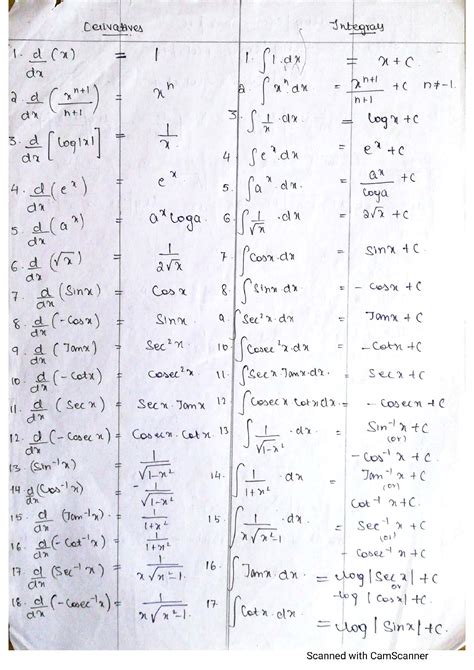 Derivatives
1. d/dx (x) = 1
2. d/dx (x^(n+1)/(n+1)) = x^n
3. d/dx [log|x|] = 1/x
4. d/dx (e^x) = e^x
5. d/dx (a^x) = a^x loga.
6. d/dx (√x) = 1/(2√x)
7. d/dx (Sinx) = Cosx
8. d/dx (-Cosx) = Sinx.
9. d/dx (Tanx) = Sec²x
10. d/dx (-Cotx) = Cosec²x
11. d/dx (Secx) = Secx.Tanx
12. d/dx (-Cosecx) = Cosecx.Cotx
13. (Sin⁻¹x) = 1/√(1-x²)
14. d/dx (Cos⁻¹x) = -1/√(1-x²)
15. d/dx (Tan⁻¹x) = 1/(1+x²)
16. d/dx (-Cot⁻¹x) = 1/(1+x²)
17. d/dx (Sec⁻¹x) = 1/(x√(x²-1))
18. d/dx (-Cosec⁻¹x) = 1/(x√(x²-1))
Integrals
1. ∫1.dx = x+C
2. ∫x^n dx = x^(n+1)/(n+1) +C n≠-1.
3. ∫1/x .dx = logx+C
4. ∫e^x.dx = e^x+C
5. ∫a^x.dx = a^x/loga +C
6. ∫1/√x .dx = 2√x +C
7. ∫Cosx.dx = Sinx+C
8. ∫Sinx.dx = -Cosx+C
9. ∫Sec²x.dx = Tanx+C
10. ∫Cosec²x.dx = -Cotx+C
11. ∫Secx.Tanx.dx = Secx+C
12. ∫Cosecx Cotx dx = -Cosecx+C
13. ∫1/√(1-x²) .dx = Sin⁻¹x+C
(or)
-Cos⁻¹x+C
14. ∫1/(1+x²) .dx = Tan⁻¹x+C
(or)
Cot⁻¹x+C.
15. ∫1/(x√(x²-1)) .dx = Sec⁻¹x+C
(or)
-Cosec⁻¹x+C
16. ∫Tanx.dx = log|Secx|+C
or
-log|Cosx|+C
17. ∫Cotx.dx = log|Sinx|+C
Scanned with CamScanner